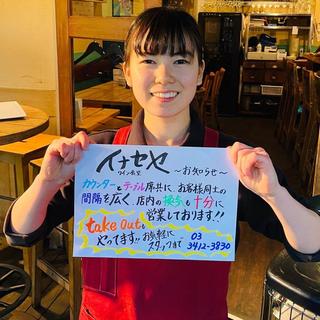 イナセヤ
ワイン食堂
〜お知らせ〜
カウンターとテーブル席共に、お客様同士の
間隔を広く、店内の換気も十分に
営業しております!!
take Out も
やってます!! お気軽に
スタッフまで
03
3412-3830